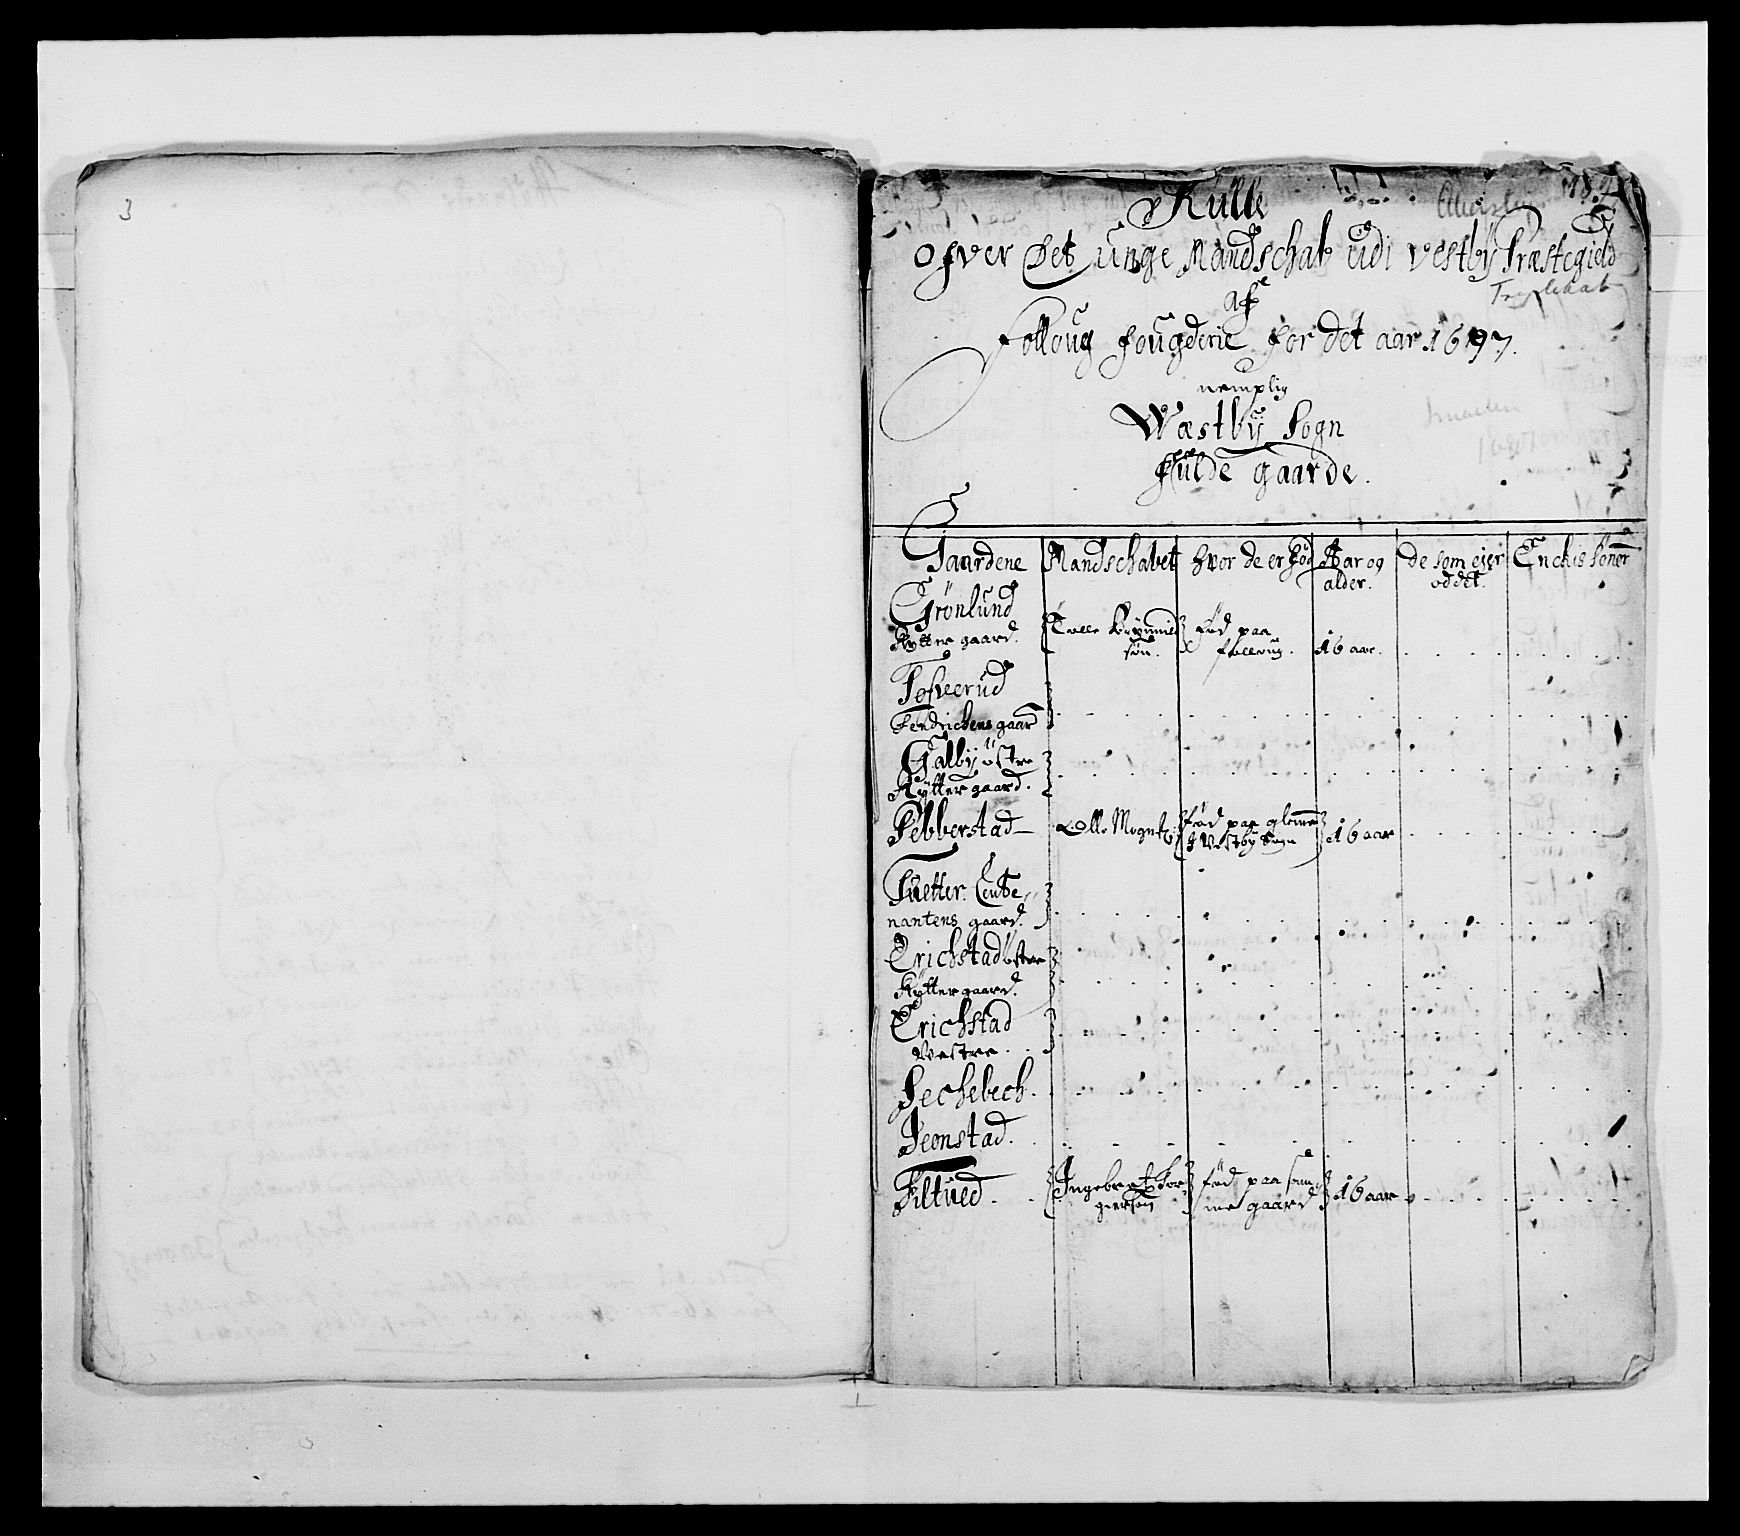 3
Rulle
ofver det unge Mandschab udi Vestby Præstegield
af
Folloug fougderie for det aar 1697.
nemplig
Wæstby Sogn
fulde gaarde.
1687
Gaardene Mandschabet hvor de er fød Aar og alder. de som eier oddel. Enchis sønner
Grønlund
Rytter gaard. søn. fød paa folloug. 16 aar.
Tofverud
Fendrichens gaard
Galby østre
Rytter gaard.
Pebberstad Olle Mogns. fød paa gleme i Vestby Sogn 16 aar
Tuetter Leute
nantens gaard.
Erichstad østre
Rytter gaard.
Erichstad
Vestre.
Sechebech.
Deonstad.
Filtued. Ingebret Tor
giersøn fød paa sam
me gaard 16 aar